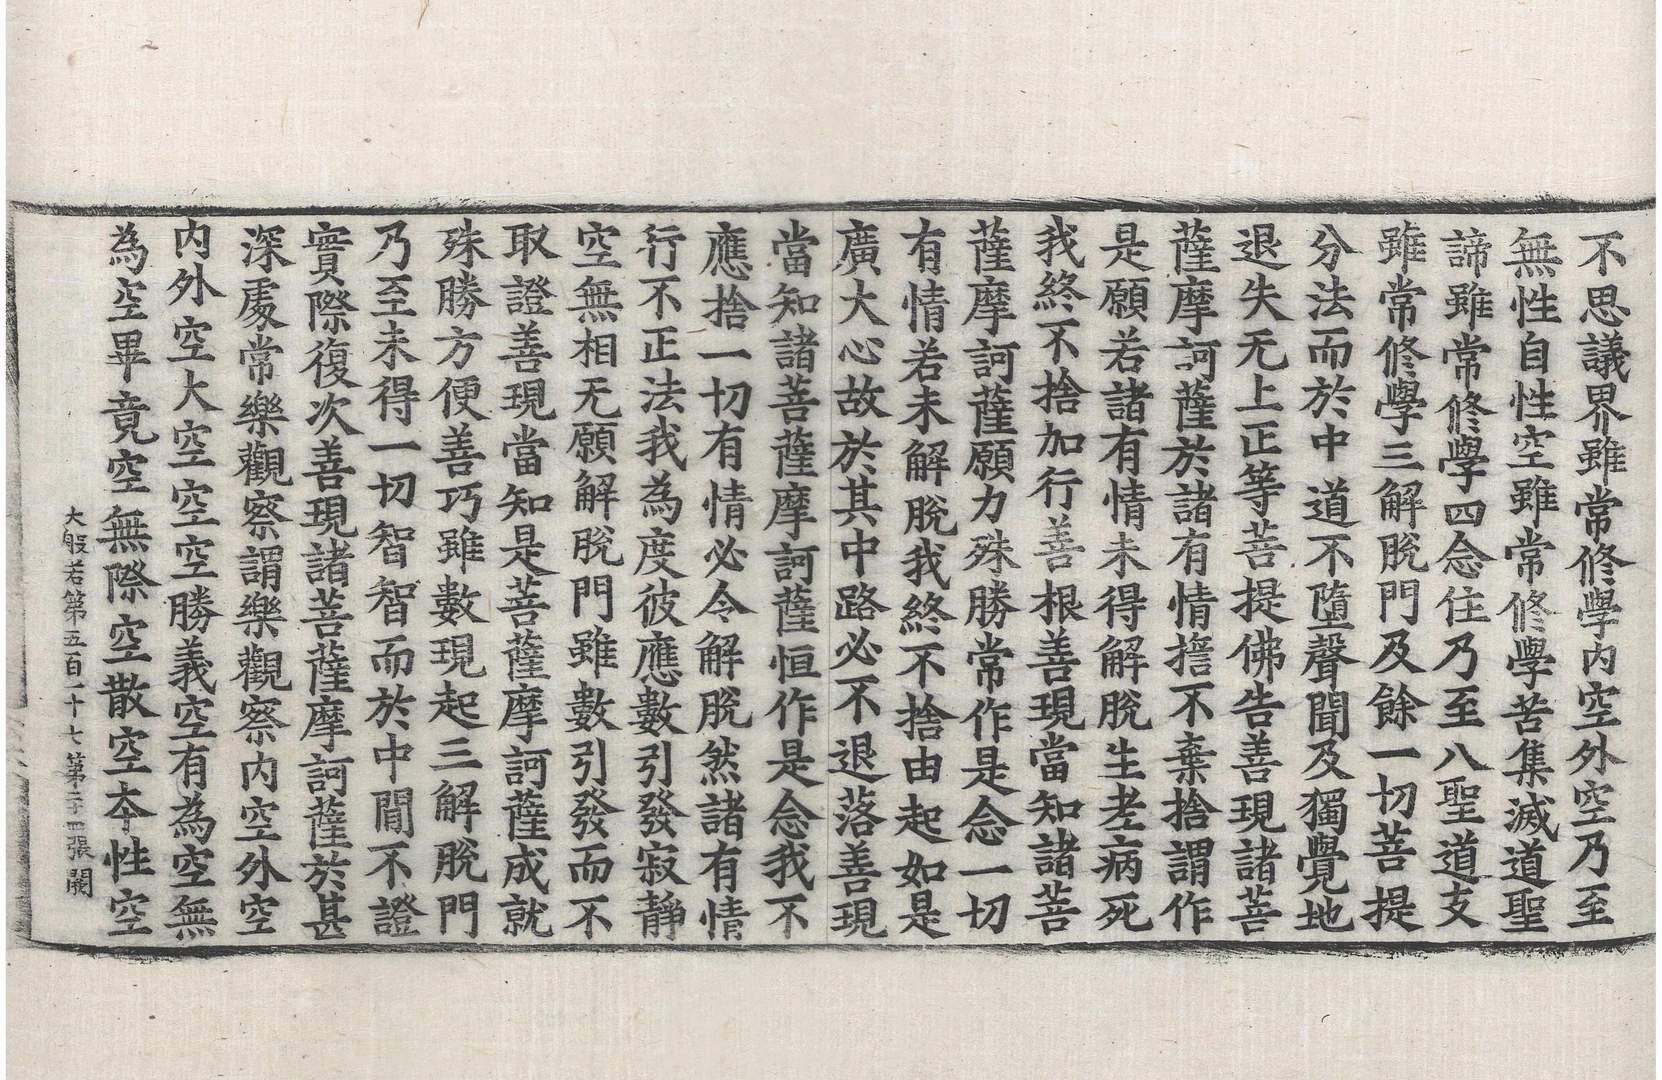 不思議界雖常修學内空外空乃至
無性自性空雖常修學苦集滅道聖
諦雖常修學四念住乃至八聖道支
雖常修學三解脫門及餘一切菩提
分法而於中道不墮聲聞及獨覺地
退失无上正等菩提佛告善現諸菩
薩摩訶薩於諸有情捨不棄捨謂作
是願若諸有情未得解脫生老病死
我終不捨加行善根善現當知諸菩
薩摩訶薩願力殊勝常作是念一切
有情若未解脫我終不捨由起如是
廣大心故於其中路必不退落善現
當知諸菩薩摩訶薩恒作是念我不
應捨一切有情必令解脫然諸有情
行不正法我為度彼應數引發寂静
空無相无願解脫門雖數引發而不
取證善現當知是菩薩摩訶薩成就
殊勝方便善巧雖數現起三解脫門
乃至未得一切智智而於中間不證
實際復次善現諸菩薩摩訶薩於甚
深處常樂觀察謂樂觀察内空外空
内外空大空空空勝義空有為空無
為空畢竟空無際空散空本性空
大般若第五百一十七第二十四張 闕